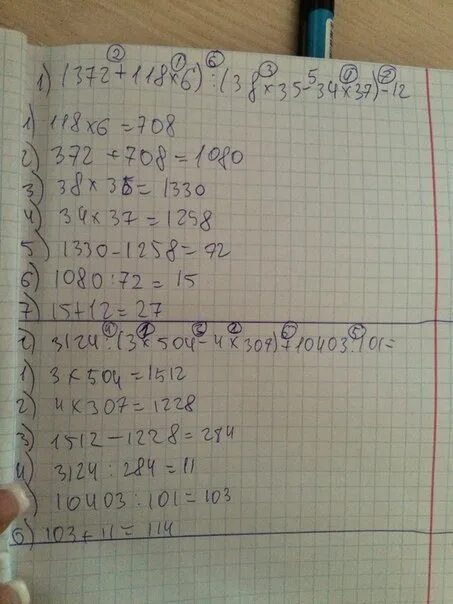 1) (372 + 118 × 6) : (38 × 35 - 34 × 37) - 12
1) 118 × 6 = 708
2) 372 + 708 = 1080
3) 38 × 35 = 1330
4) 34 × 37 = 1258
5) 1330 - 1258 = 72
6) 1080 : 72 = 15
7) 15 + 12 = 27
2) 3124 : (3 × 504 - 4 × 307) + 10403 : 101 =
1) 3 × 504 = 1512
2) 4 × 307 = 1228
3) 1512 - 1228 = 284
4) 3124 : 284 = 11
) 10403 : 101 = 103
6) 103 + 11 = 114